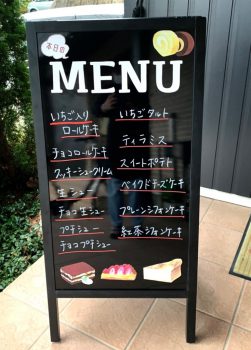 本日の
MENU
いちご入り
ロールケーキ
チョコロールケーキ
クッキーシュークリーム
生シュー
チョコ生シュー
プチシュー
チョコプチシュー
いちごタルト
ティラミス
スイートポテト
ベイクドチーズケーキ
プレーンシフォンケーキ
紅茶シフォンケーキ